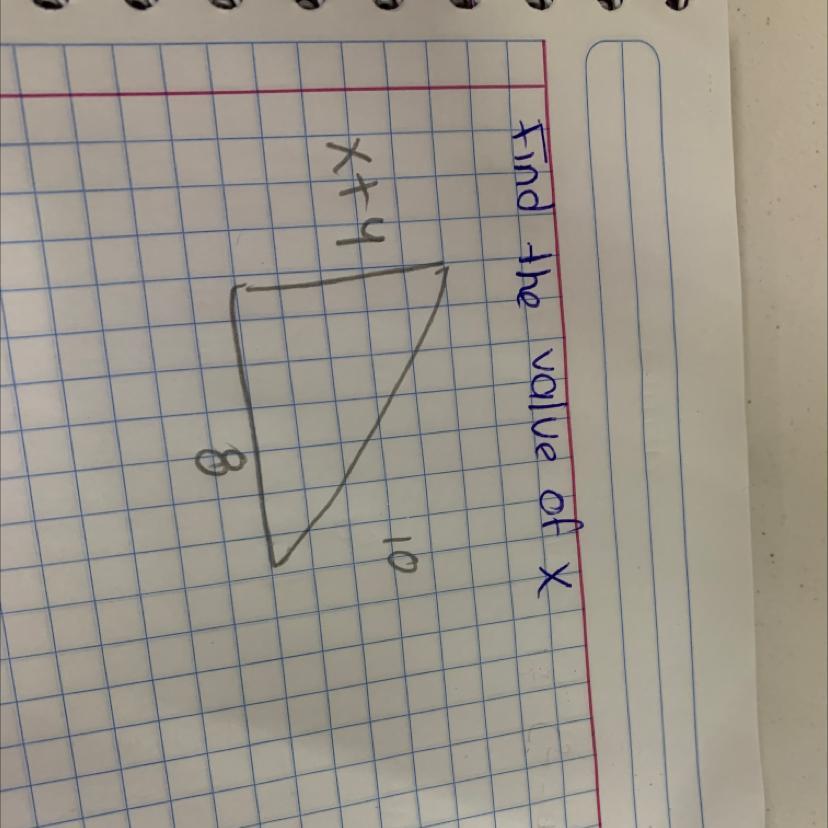 Find the value of x
x+4
10
8